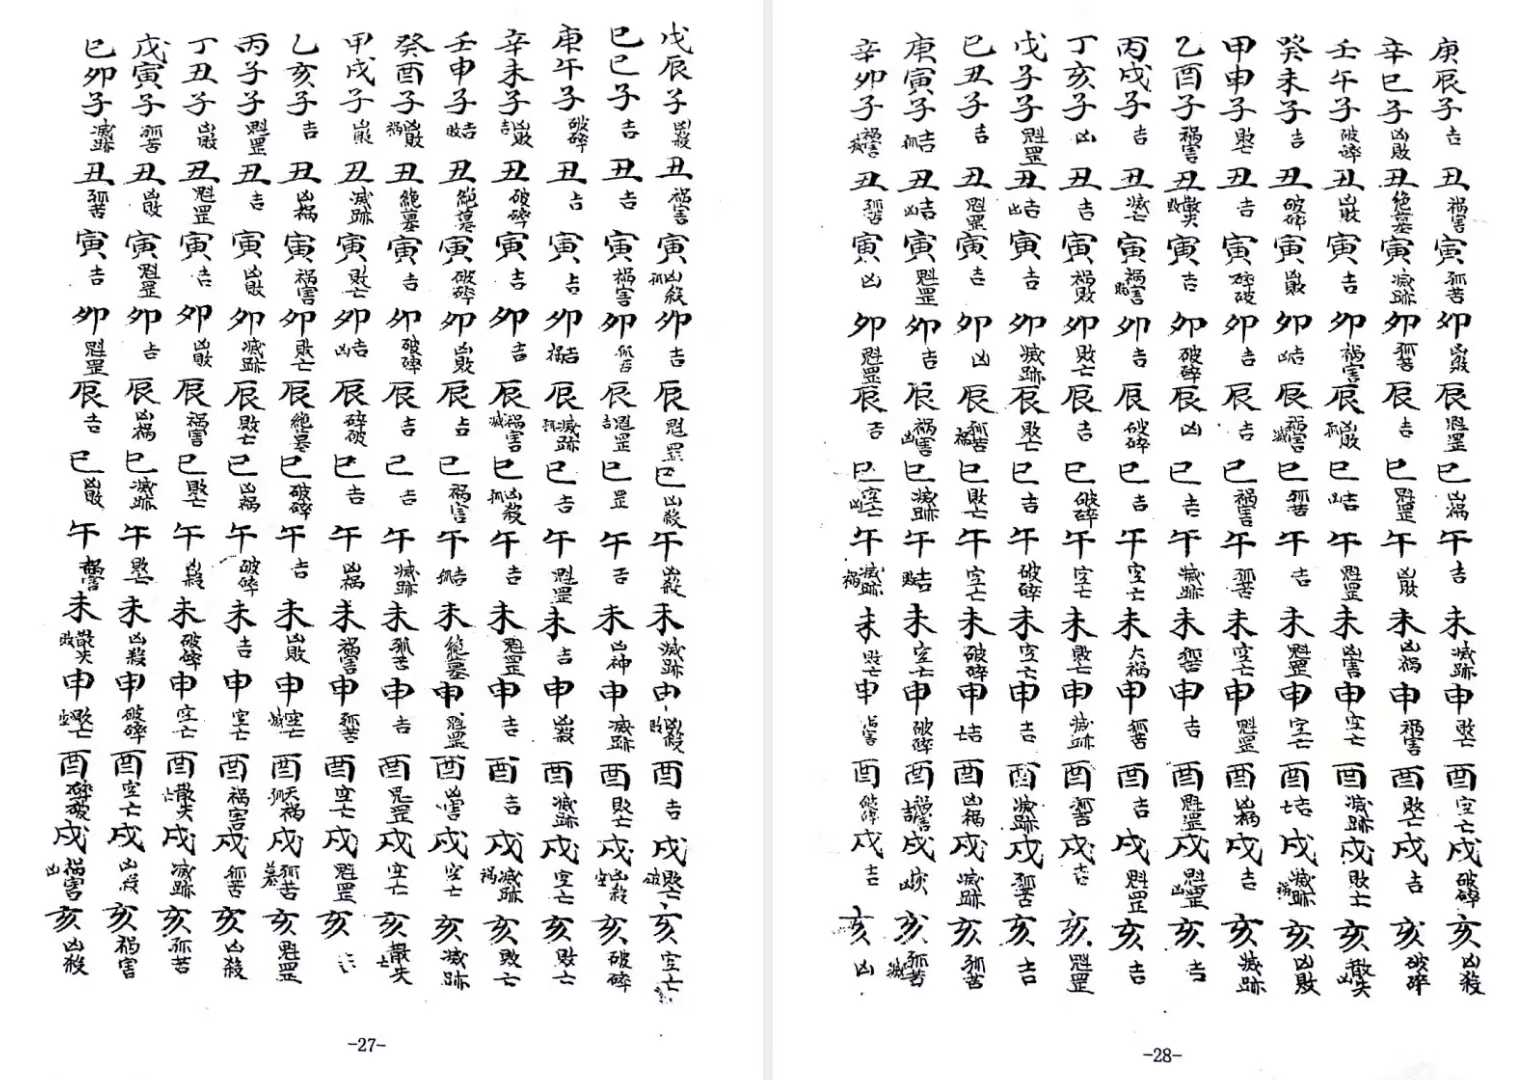 戊辰子凶殺丑祸害寅凶殺孤卯吉辰魁罡巳凶殺午凶殺未滅跡申凶殺敗酉吉戌敗亡破亥空亡
巳巳子吉丑吉寅祸害卯孤苦辰魁罡吉巳罡午吉未凶神申滅跡酉敗亡戌凶殺空亥破碎
庚午子破碎丑吉寅吉卯吉祸辰滅跡孤巳吉午魁罡未吉申凶殺酉滅跡戌空亡亥敗亡
辛未子凶敗吉丑破碎寅吉卯吉辰祸害滅巳凶殺孤午吉未魁罡申吉酉吉戌滅跡祸亥敗亡
壬申子吉敗丑絕墓寅破碎卯凶敗辰吉巳祸害午吉孤未絕墓申魁罡酉凶害戌空亡亥滅跡
癸酉子凶敗祸丑絕墓寅吉卯破碎辰吉巳吉午滅跡未孤苦申吉酉魁罡戌空亡亥散失亡
甲戌子凶敗丑滅跡寅敗亡卯吉凶辰碎破巳吉午凶祸未祸害申孤苦酉空亡戌魁罡亥
乙亥子吉丑凶祸寅祸害卯敗亡辰絕墓巳破碎午吉未凶敗申空亡滅酉天祸孤戌孤苦墓亥魁罡
丙子子魁罡丑吉寅凶敗卯滅跡辰敗亡巳凶祸午破碎未吉申空亡酉祸害戌孤苦亥凶殺
丁丑子凶敗丑魁罡寅吉卯凶敗辰祸害巳敗亡午凶殺未破碎申空亡酉散失亡戌滅跡亥孤苦
戊寅子孤苦丑凶敗寅魁罡卯吉辰凶祸巳滅跡午敗亡未凶殺申破碎酉空亡戌凶殺亥祸害
巳卯子滅跡丑孤苦寅吉卯魁罡辰吉巳凶敗午祸害未散失敗申敗亡空酉碎破戌祸害凶亥凶殺
-27-
庚辰子吉丑祸害寅孤苦卯凶敗辰魁罡巳凶祸午吉未滅跡申敗亡酉空亡戌破碎亥凶殺
辛巳子凶敗丑絕墓寅滅跡卯孤苦辰吉巳魁罡午凶敗未凶祸申祸害酉敗亡戌吉亥破碎
壬午子破碎丑凶敗寅吉卯祸害辰凶敗孤巳吉凶午魁罡未凶害申空亡酉滅跡戌敗亡亥散失凶
癸未子吉丑破碎寅凶敗卯吉凶辰祸害滅巳孤苦午吉未魁罡申空亡酉吉亡戌滅跡亥凶敗
甲申子敗亡丑吉寅碎破卯吉辰吉巳祸害午孤苦未空亡申魁罡酉凶祸戌吉亥滅跡
乙酉子祸害丑散失敗寅吉卯破碎辰凶巳吉午滅跡未孤苦申吉酉魁罡戌魁罡凶亥吉
丙戌子吉丑滅亡寅祸害敗卯吉辰破碎巳吉午空亡未大祸申孤苦酉吉戌魁罡亥吉
丁亥子凶丑吉寅祸敗卯敗亡辰吉巳破碎午空亡未敗亡申滅跡酉孤苦戌吉亥魁罡
戊子子魁罡丑吉凶寅吉卯滅跡辰敗亡巳吉午破碎未空亡申吉酉滅跡戌孤苦亥吉
巳丑子吉丑魁罡寅吉卯凶辰孤苦祸巳敗亡午空亡未破碎申吉亡酉凶祸戌滅跡亥孤苦
庚寅子吉孤丑吉凶寅魁罡卯吉辰祸害凶巳滅跡午吉敗未空亡申破碎酉祸害戌亥孤苦滅
辛卯子祸害丑孤苦寅凶卯魁罡辰吉巳空亡凶午滅跡祸未敗亡申害酉破碎戌吉亥凶
-28-